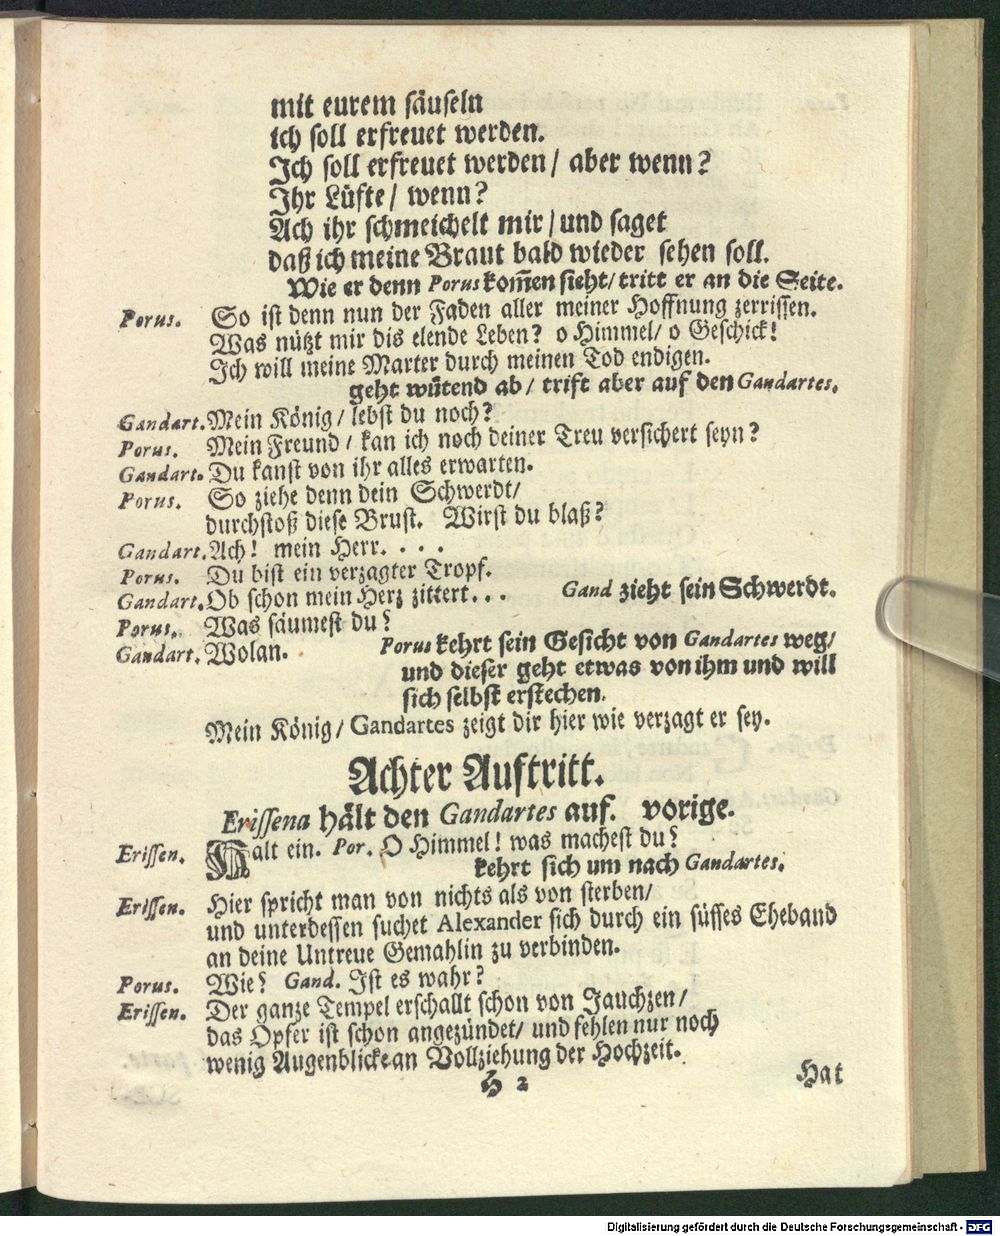 mit eurem säuseln
ich soll erfreuet werden.
Ich soll erfreuet werden/ aber wenn?
Ihr Lüfte/ wenn?
Ach ihr schmeichelt mir/ und saget
daß ich meine Braut bald wieder sehen soll.
Wie er denn Porus kom̅en sieht/ tritt er an die Seite.
Porus. So ist denn nun der Faden aller meiner Hoffnung zerrissen.
Was nützt mir dis elende Leben? o Himmel/ o Geschick!
Ich will meine Marter durch meinen Tod endigen.
geht wütend ab/ trift aber auf den Gandartes.
Gandart. Mein König/ lebst du noch?
Porus. Mein Freund/ kan ich noch deiner Treu versichert seyn?
Gandart. Du kanst von ihr alles erwarten.
Porus. So ziehe denn dein Schwerdt/
durchstoß diese Brust. Wirst du blaß?
Gandart. Ach! mein Herr. . . .
Porus. Du bist ein verzagter Tropf.
Gandart. Ob schon mein Herz zittert. . . Gand zieht sein Schwerdt.
Porus. Was säumest du?
Gandart. Wolan. Porus kehrt sein Gesicht von Gandartes weg/
und dieser geht etwas von ihm und will
sich selbst erstechen.
Mein König/ Gandartes zeigt dir hier wie verzagt er sey.
Achter Auftritt.
Erissena hält den Gandartes auf. vorige.
Erissen. Halt ein. Por. O Himmel! was machest du?
kehrt sich um nach Gandartes.
Erissen. Hier spricht man von nichts als von sterben/
und unterdessen suchet Alexander sich durch ein süsses Eheband
an deine Untreue Gemahlin zu verbinden.
Porus. Wie? Gand. Ist es wahr?
Erissen. Der ganze Tempel erschallt schon von Jauchzen/
das Opfer ist schon angezündet/ und fehlen nur noch
wenig Augenblicke an Vollziehung der Hochzeit.
H 2 Hat
Digitalisierung gefördert durch die Deutsche Forschungsgemeinschaft - DFG